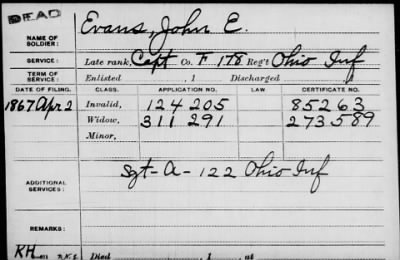 DEAD
NAME OF SOLDIER: Evans, John E.
SERVICE: Late rank, Capt Co. F 178 Reg't Ohio Inf
TERM OF SERVICE: Enlisted , 1 Discharged , 1
DATE OF FILING. CLASS. APPLICATION NO. LAW. CERTIFICATE NO.
1867 Apr 2 Invalid, 124 205 85263
Widow, 311 291 273589
Minor,
ADDITIONAL SERVICES: Sgt-A-122 Ohio Inf
REMARKS:
RH Died , 1 , at